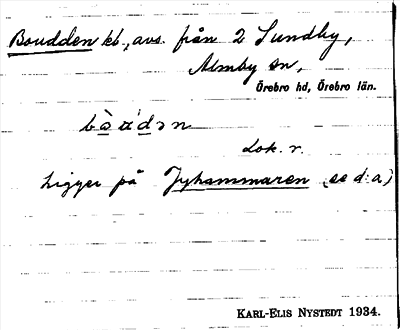 Boudden kb., avs. från 2 Sundby,
Almby sn,
Örebro hd, Örebro län.
Lok. r.
Ligger på Jyhammaren (se d:a)
KARL-ELIS NYSTEDT 1934.